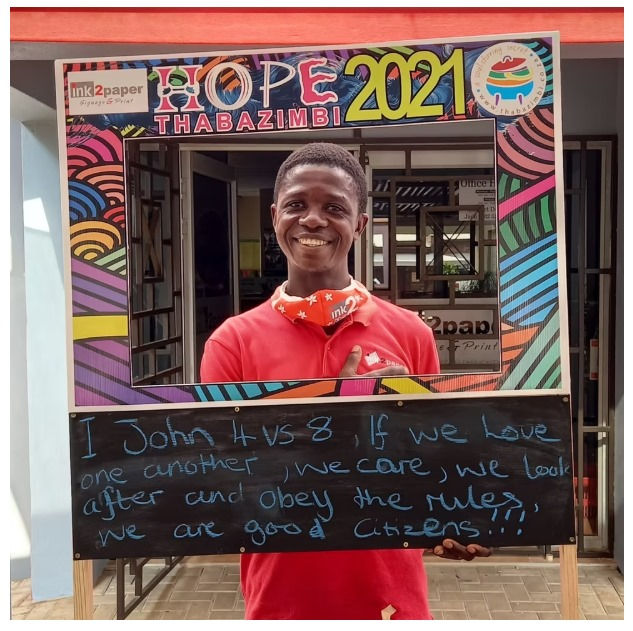 ink2paper
Signage & Print
HOPE 2021
THABAZIMBI
www.thabazimbi
Office H
ink2
ink2paper
2pap
e & Print
I John 4 vs 8, If we Love
one another, we care, we Look
after and obey the rules,
we are good Citizens!!!